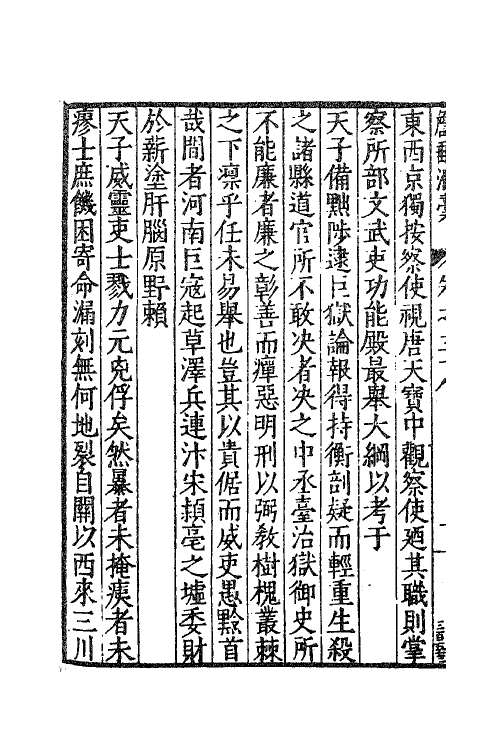 東西京獨按察使視唐天寶中觀察使廼其職則掌
察所部文武吏功能殿最舉大綱以考于
天子備黜陟逮巨獄論報得持衡剖疑而輕重生殺
之諸縣道官所不敢决者决之中丞臺治獄御史所
不能廉者廉之彰善而癉惡明刑以弼教樹槐叢棘
之下凛乎任未易舉也豈其以貴倨而威吏愚黔首
哉間者河南巨寇起草澤兵連汴宋頴亳之墟委財
於薪塗肝腦原野賴
天子威靈吏士戮力元兇俘矣然暴者未掩痍者未
瘳士庶饑困寄命漏刻無何地裂自關以西來三川